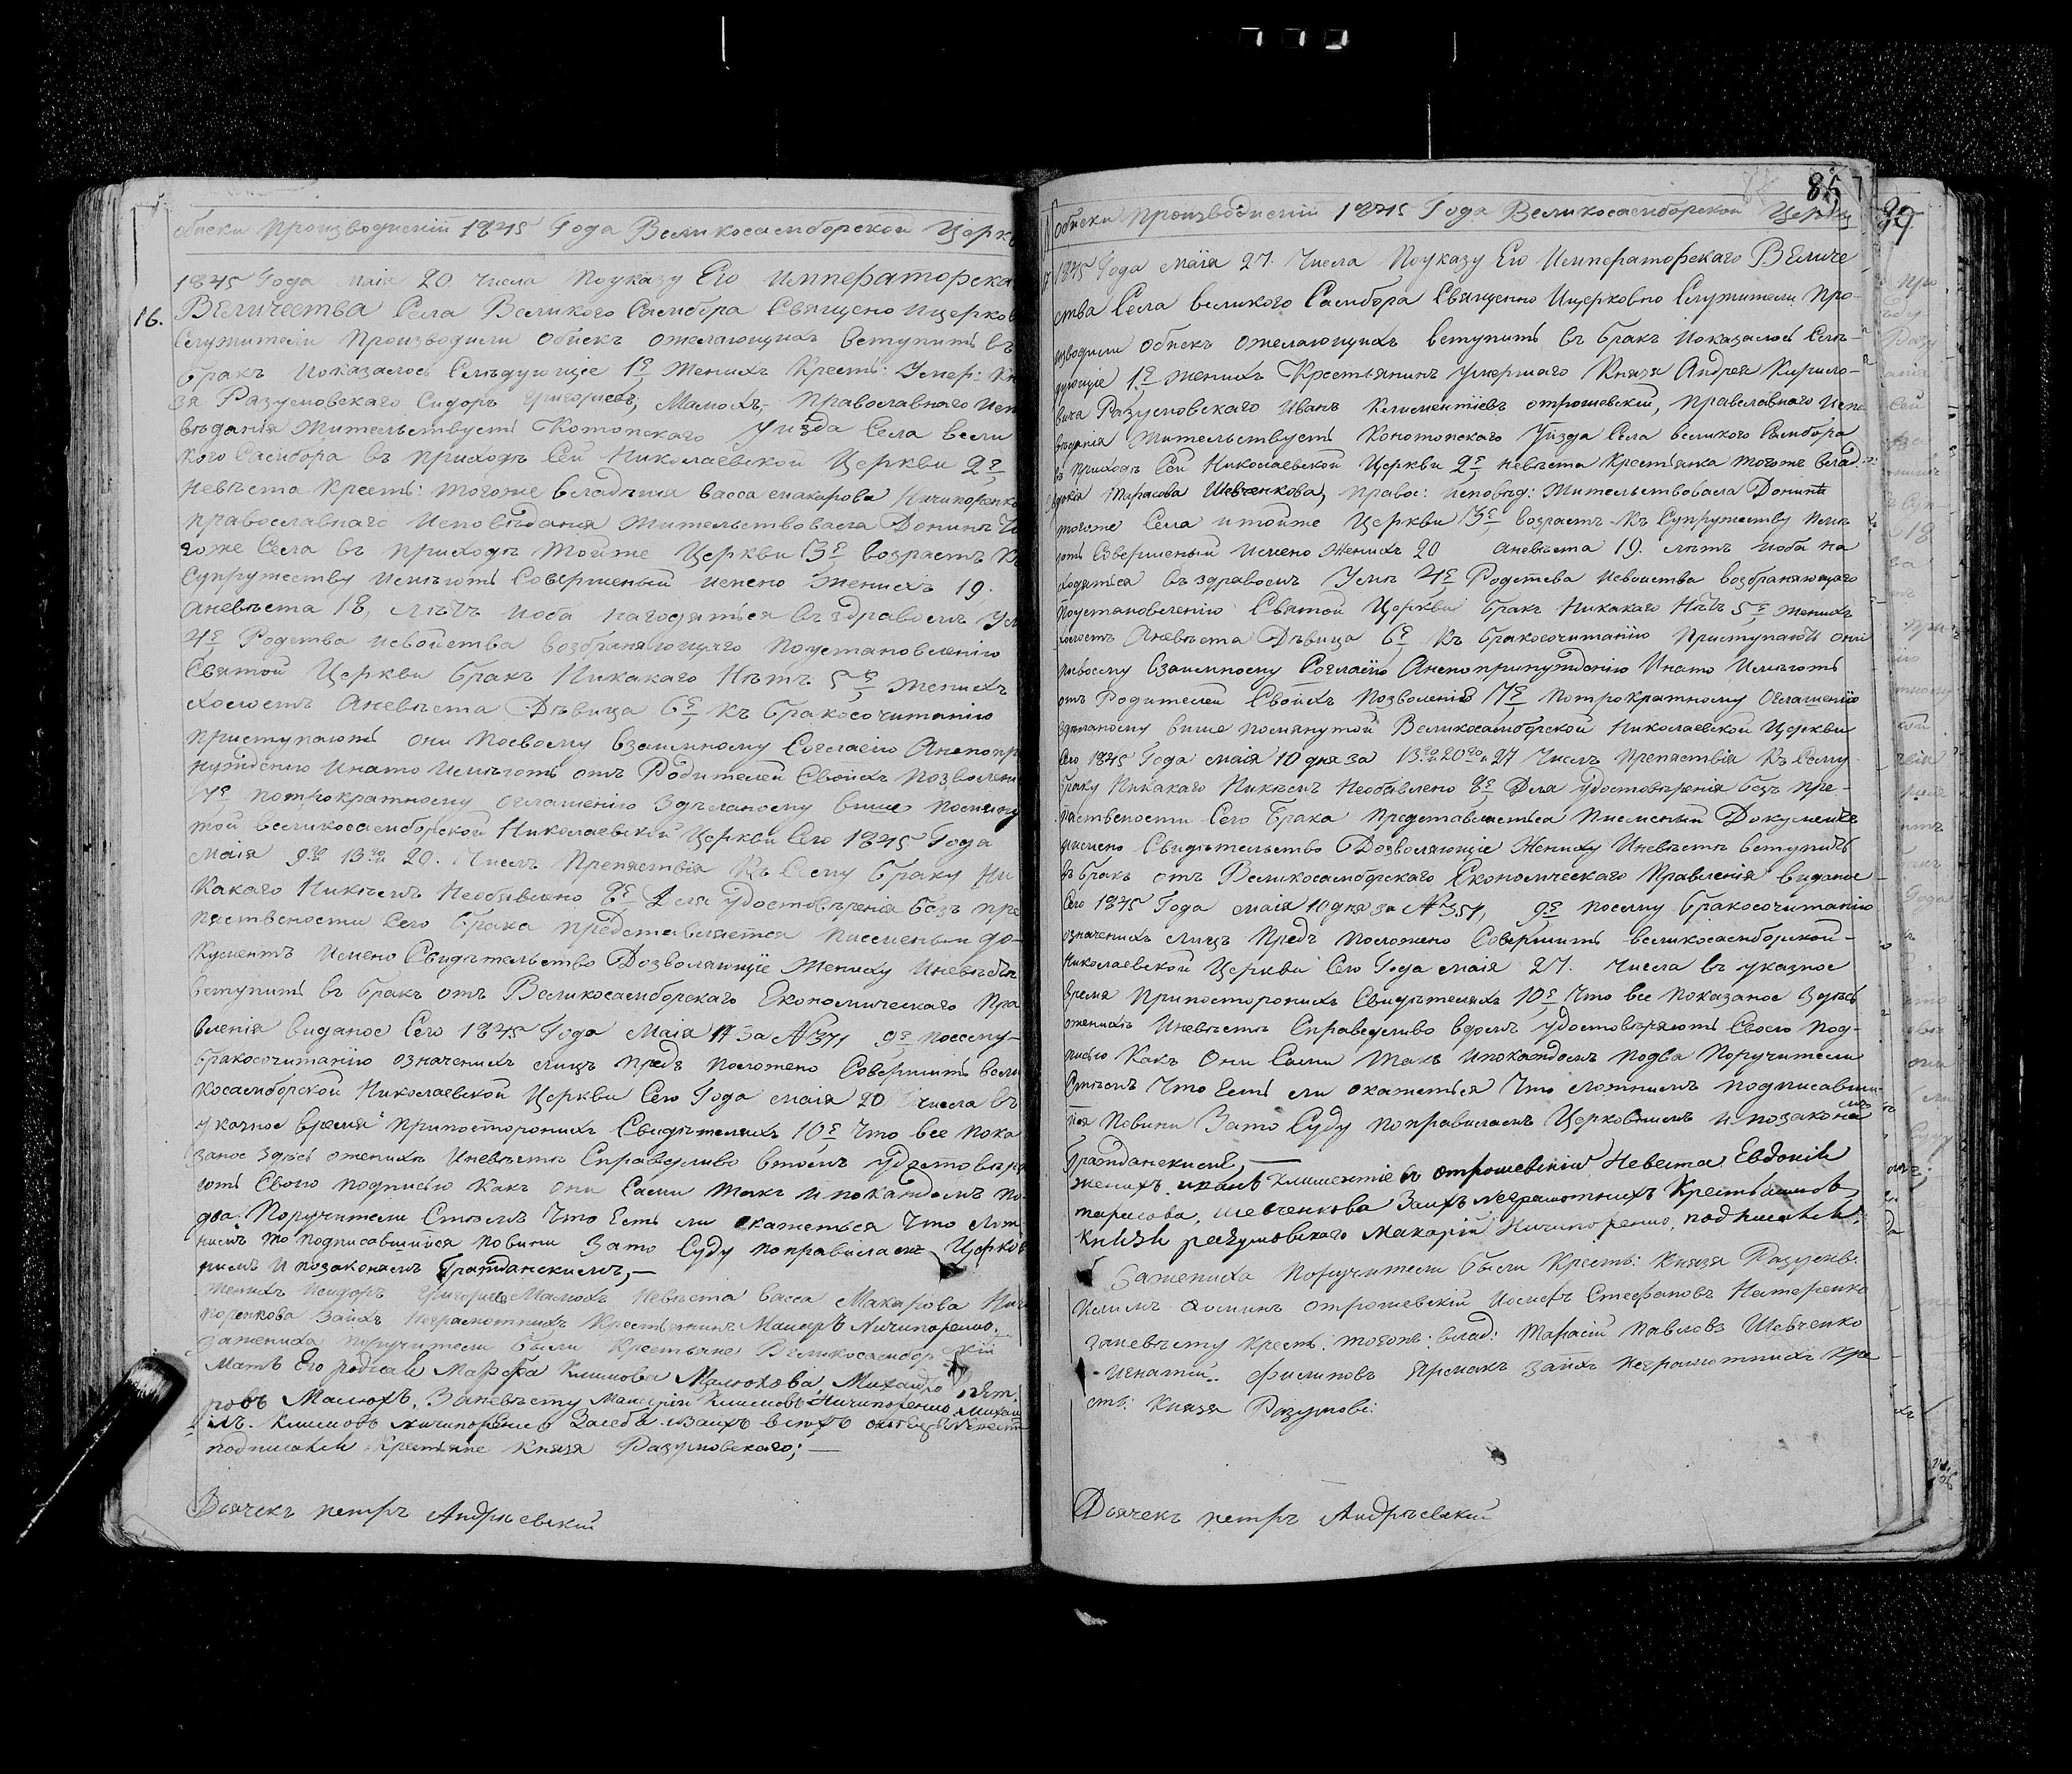 обиски производнсній 1845 Года Великосамборской Церкв
1845 Года маія 20 числа Поуказу Его Императорска
16.
ВЕличества Села Великого Самбора Священо ицерков
Служители производили обиск ожелающихъ вступить въ
бракъ ипоказалось Слѣдующіе 1е Женихъ Кресть: Умер: Кн
зя Разумовского Сидоръ Григориевъ, Малюхъ, православнаго исп
вѣданія Жительствуетъ Конотопского Уизда Села вели
кого Самбора въ приходѣ Сей Николаевской Церкви 2е
невѣста Кресть: тогоже владѣния васса макарова Ничипоренко
православнаго исповѣданія Жительствовала Донинѣ то
гоже Села въ приходѣ тойже Церкви 3е возрастъ къ
Супружеству имѣють Совершеный имено Женихъ 19.
аневѣста 18, лѣтъ иоба находяться въ здравомъ Ум
4е Родства исвойства возбраняющаго поустановленію
Святой Церкви бракъ Никакаго Нѣтъ 5е женихъ
холостъ Аневѣста Дѣвица 6е къ бракосочитанію
приступають они посвоему взаимному Согласію Анепопр
нужденію инато имѣють отъ Родителей Своихъ позволени
7е потрократному оглашенію здѣланому више помяну
той великосамборской Николаевской Церкви Сего 1845 Года
маія 9го 13го 20. Числъ Препяствія Къ Сему браку Ни
какаго Никѣмъ Необявлено 8е Для удостовѣренія безъ пре
пяствености Сего брака представляется писменый до-
кументъ имено Свидѣтельство Дозволяющіе Жениху иневѣстѣ
вступить въ бракъ отъ Великосамборскаго Економическаго Пра
вленія виданое Сего 1845 Года Маія За № 371 9е посему-
бракосочитанію означенихъ лицъ предъ положено Совершить вели
косамборской Николаевской Церкви Сего Года маія 20 числа въ
указное время припосторонихъ Свидѣтеляхъ 10е Что все пока
заное здѣсь оженихѣ иневѣстѣ Справедливо втомъ удостовѣря
ють Своею подписью какъ они Сами такъ ипокаждомъ по
два Поручители Стѣмъ Что Есть ли окажеться Что лож
нимъ то подписавшийся повини Зато Суду поправиламъ Церков
нимъ и позаконамъ Гражданскимъ,—
женихъ исидоръ Григориевъ Малюхъ невѣста васса Макарова Ничи
поренкова Заихъ неграмотнихъ Крестьянинъ Макаръ Ничипоренко.
зажениха поручители были Крестьяне Великосамборскій
Мать Его родная Марфа Климова Малюхова Михайло Пет
ровъ Малюхъ, Заневѣсту Макарій Климовъ Ничипоренко Михаи
лъ. Климовъ ничипоренко Засебя изаихъ всѣхъ
подписался Крестьяне Князя Разумовскаго;—
Дьячекъ петръ Андрѣевскій
85
обиски производнсній 1845 Года Великосамборской Церкви
1845 Года маія 27. Числа Поуказу Его Императорскаго ВЕличе
ства Села великого Самбора Священно Ицерковно Служители про-
изводили обискъ ожелающихъ вступить въ бракъ ипоказалось Слѣ-
дующіе 1е женихъ Крестьянинъ умершаго Князя Андрея Кирило-
вича Разумовскаго Иванъ Климентіевъ отрошевскій, православнаго Испо
вѣданія Жительствуеть Конотопскаго Уизда Села великого Самбора
въ приходѣ Сей Николаевской Церкви 2е невѣста Крестьянка тогожъ влад.
Евдокія Тарасова Шевченкова, правос: исповѣд: Жительствовала Донинѣ
тогоже Села итойже Церкви 3е возрастъ къ Супружеству имѣ
ють Совершеный имено Женихъ 20 аневѣста 19. лѣтъ иоба на
ходяться въ здравомъ Умѣ 4е Родства исвойства возбраняющаго
поустановленію Святой Церкви бракъ Никакаго Нѣтъ 5е женихъ
холостъ Аневѣста Дѣвица 6е къ бракосочитанію приступають они
посвоему взаимному Согласію Анепопринужденію Инато Имѣють
отъ Родителей Своихъ позволеніе 7е потрократному оглашенію
здѣланому више помянутой Великосамборской Николаевской Церкви
Сего 1845 Года маія 10 дня за 13го 20го и 27 Числъ препяствія къ Сему
браку Никакаго Никѣмъ Необявлено 8е Для удостовѣренія безъ пре-
пяствености Сего Брака представляеться писменый Документъ
имено Свидѣтельство Дозволяющіе Жениху Иневѣстѣ вступить
въ бракъ отъ Великосамборскаго Економическаго правленія виданое
Сего 1845 Года маія 10 дня за № 351, 9е посему бракосочитанію
означенихъ лицъ предъ положено Совершить великосамборской-
Николаевской Церкви Сего Года маія 27. числа въ указное
время припосторонихъ Свидѣтеляхъ 10е Что все показаное здѣсь
оженихѣ иневѣстѣ Справедливо втомъ удостовѣряють Своею под-
писью Какъ Они Сами такъ ипокаждомъ подва Поручители
Стѣмъ Что Есть ли окажеться Что ложнимъ подписавши-
ися повини Зато Суду поправиламъ Церковнимъ и позаконамъ
Гражданскимъ,—
женихъ иванъ климентиевъ отрошевскій Невеста Евдокія
тарасова, шевченкова Заихъ неграмотнихъ Крестьянинов
Князя разумовскаго Макарій Ничипоренко. подписался.
Зажениха Поручители были Кресть: Князя Разумов:
отрошевскій Иосифъ Стефановъ Нестеренко
заневѣсту кресть. тогожъ: влад: Тарасій павловъ Шевченко
игнатій. филиповъ Ярмакъ заихъ неграмотнихъ кре
сть: Князя Разумовс:
Дьячекъ петръ Андрѣевскій